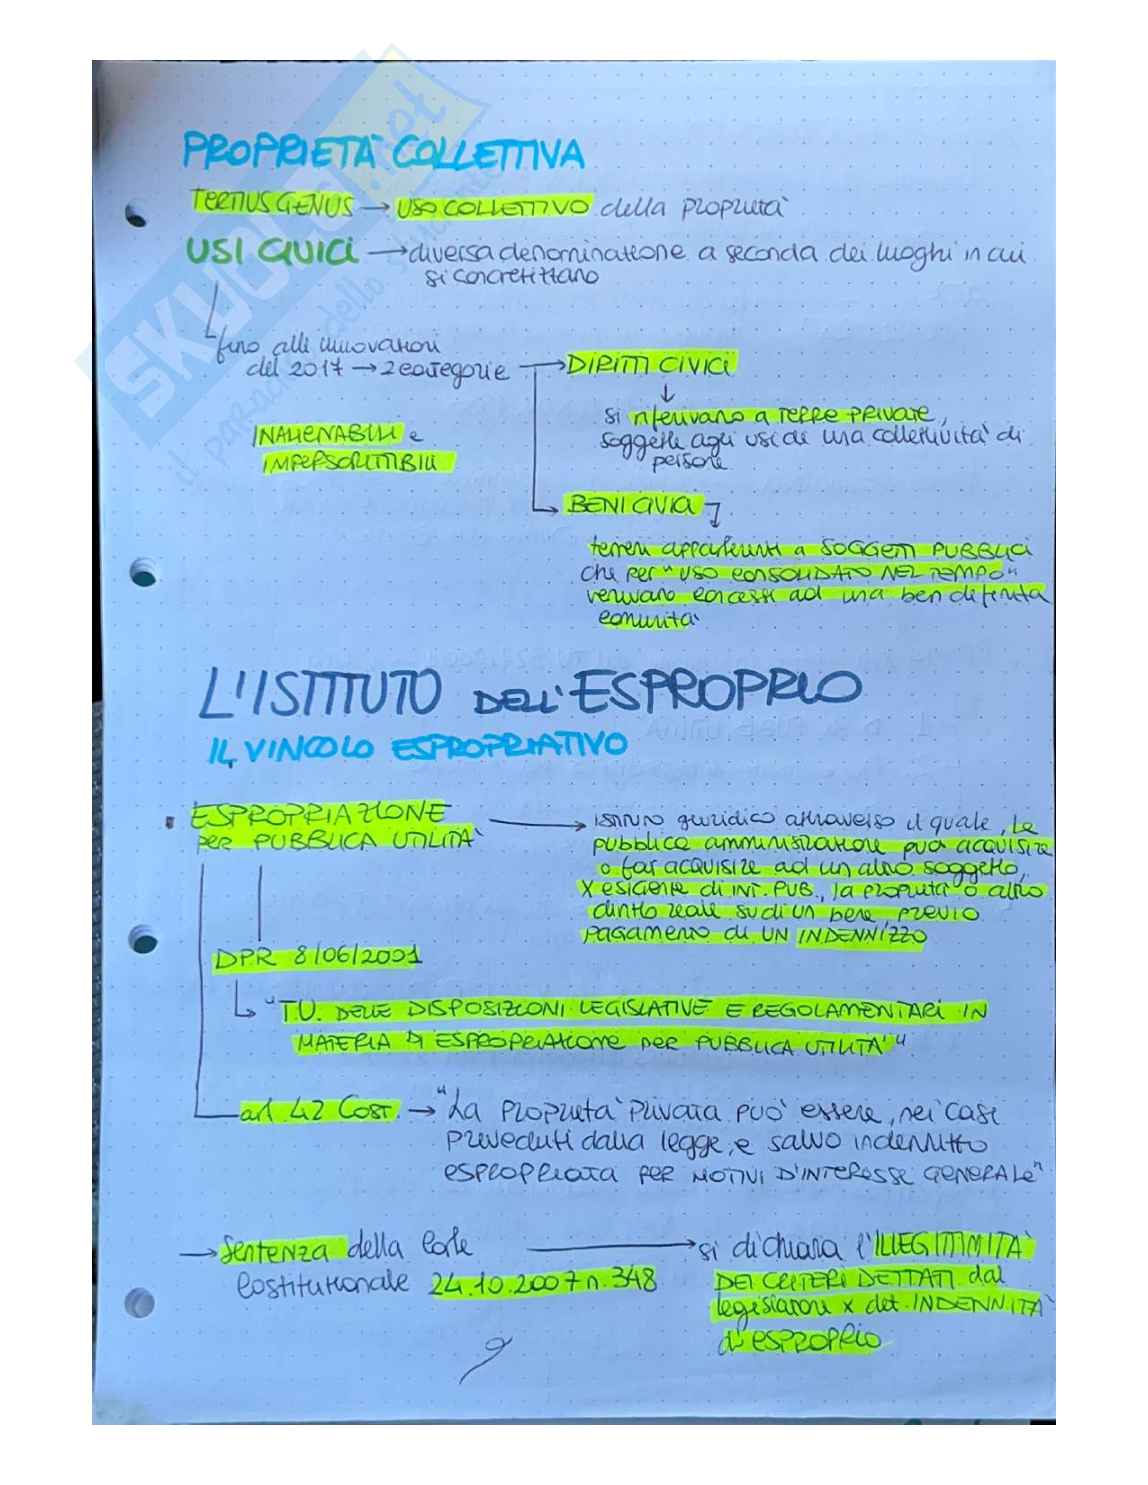 PROPRIETÀ COLLETTIVA
TERTIUS GENUS → USO COLLETTIVO della proprietà
USI CIVICI → diversa denominazione a seconda dei luoghi in cui
si concretizzano
fino alle innovazioni
del 2017 → 2 categorie → DIRITTI CIVICI
si riferivano a TERRE PRIVATE,
soggette agli usi di una collettività di
persone
INALIENABILI e
IMPERSCRITTIBILI
BENI CIVICI
terreni appartenenti a SOGGETTI PUBBLICI
che per "USO CONSOLIDATO NEL TEMPO"
venivano concessi ad una ben definita
comunità
L'ISTITUTO DELL'ESPROPRIO
IL VINCOLO ESPROPRIATIVO
ESPROPRIAZIONE
per PUBBLICA UTILITÀ
→ istituto giuridico attraverso il quale, la
pubblica amministrazione può acquisire
o far acquisire ad un altro soggetto,
x esigenze di INT. PUB., la proprietà o altro
diritto reale su di un bene, previo
pagamento di UN INDENNIZZO
DPR 8/06/2001
"T.U. DELLE DISPOSIZIONI LEGISLATIVE E REGOLAMENTARI IN
MATERIA DI ESPROPRIAZIONE PER PUBBLICA UTILITÀ".
art. 42 COST. → "La proprietà privata può essere, nei casi
preveduti dalla legge, e salvo indennizzo
espropriata PER MOTIVI D'INTERESSE GENERALE"
→ Sentenza della Corte
Costituzionale 24.10.2007 n. 348
→ si dichiara l'ILLEGITTIMITÀ
DEI CRITERI DETTATI dal
legislatore x det. INDENNITÀ
d'ESPROPRIO
9
SKUOLA.net
il paradiso dello studente